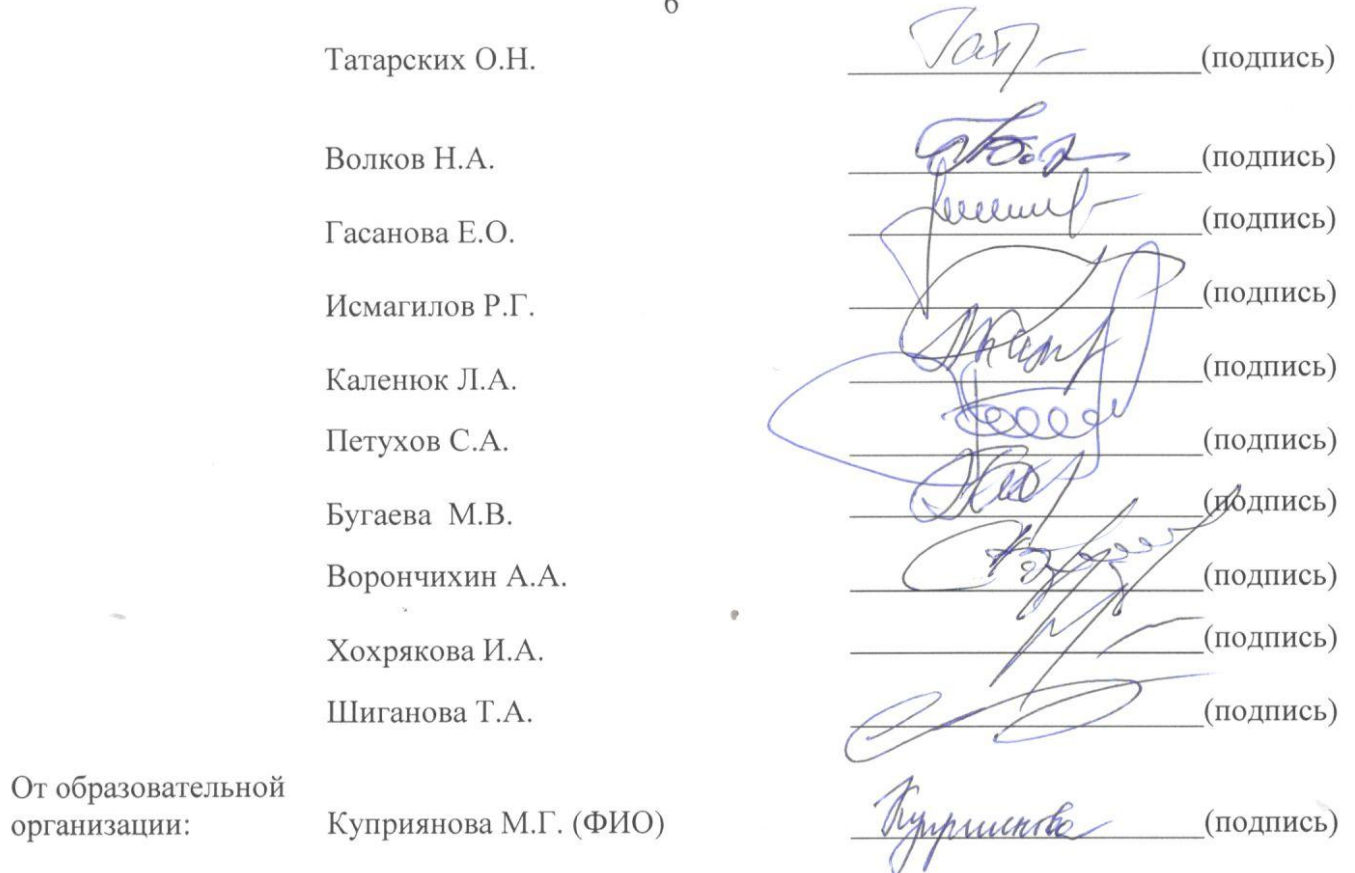 6
Татарских О.Н. (подпись)
Волков Н.А. (подпись)
Гасанова Е.О. (подпись)
Исмагилов Р.Г. (подпись)
Каленюк Л.А. (подпись)
Петухов С.А. (подпись)
Бугаева М.В. (подпись)
Ворончихин А.А. (подпись)
Хохрякова И.А. (подпись)
Шиганова Т.А. (подпись)
От образовательной
организации: Куприянова М.Г. (ФИО) (подпись)